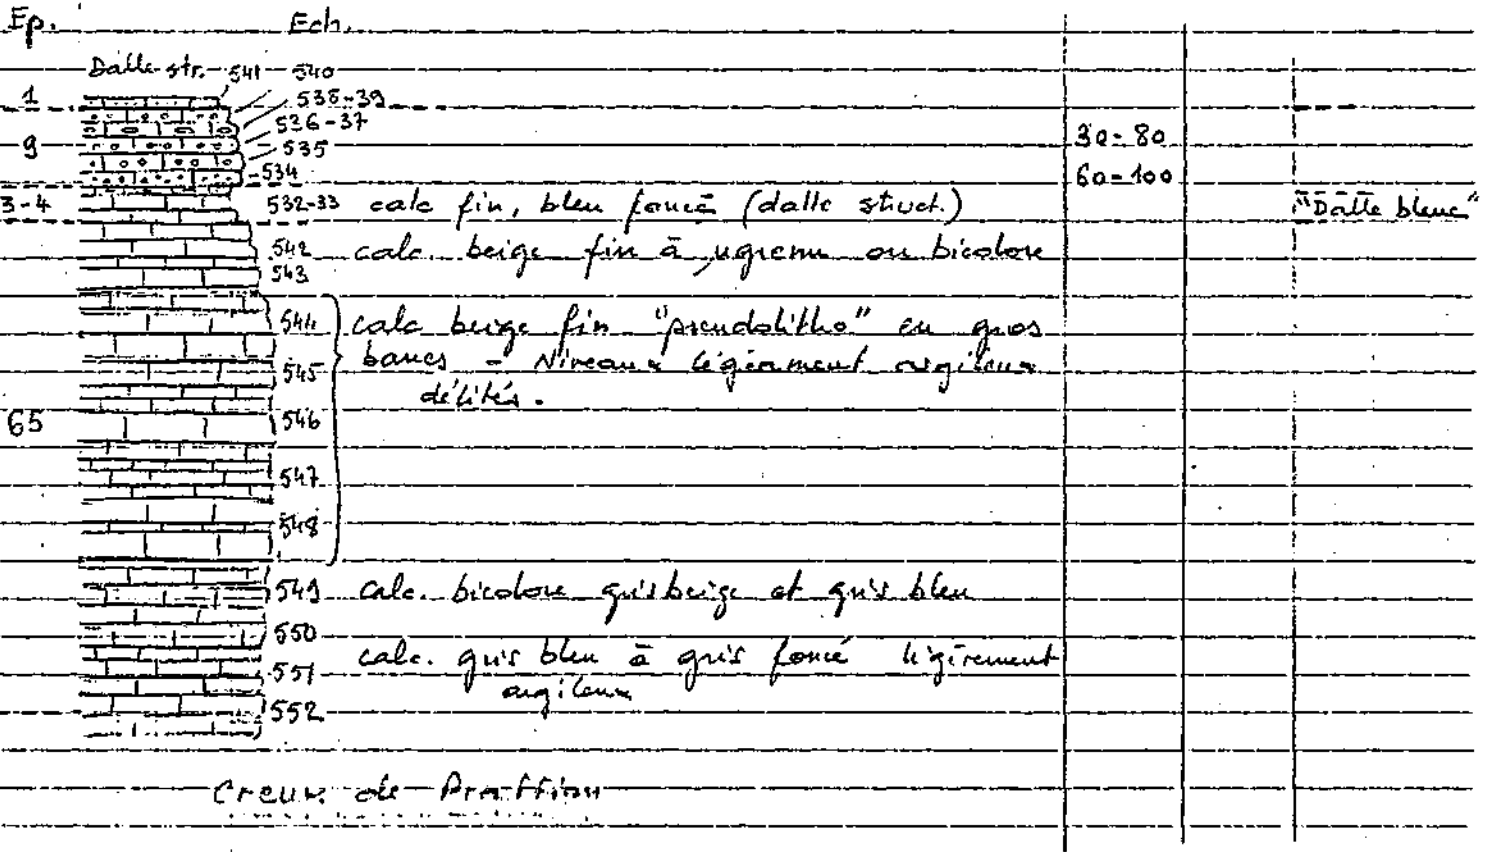 Ep. Ech.
Dalle str. 541 540
1 538-39
536-37
9 535 30-80
534 60-100
3-4 532-33 calc fin, bleu foncé (dalle struct.) "Dalle bleue"
542 calc. beige fin à ugrenu ou bicolore
543
544 calc beige fin "pseudolitho" en gros
545 bancs - Niveaux légèrement argileux
délités.
65 546
547
548
549 calc. bicolore gris beige et gris bleu
550
551 calc. gris bleu à gris foncé légèrement
argileux
552
Creux de